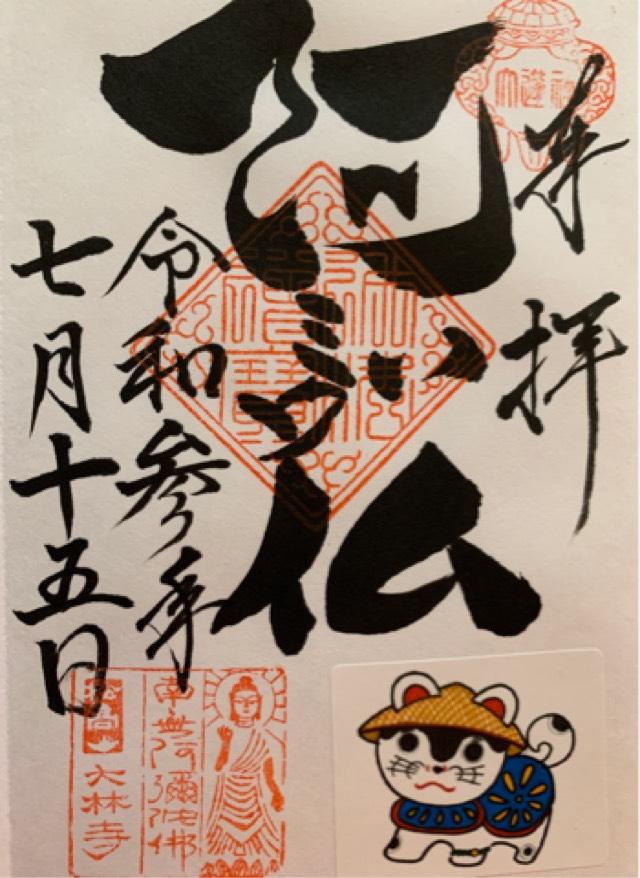 奉拝
阿
仏
佛法
僧寶
令和参年
七月十五日
南無阿彌陀佛
大林寺